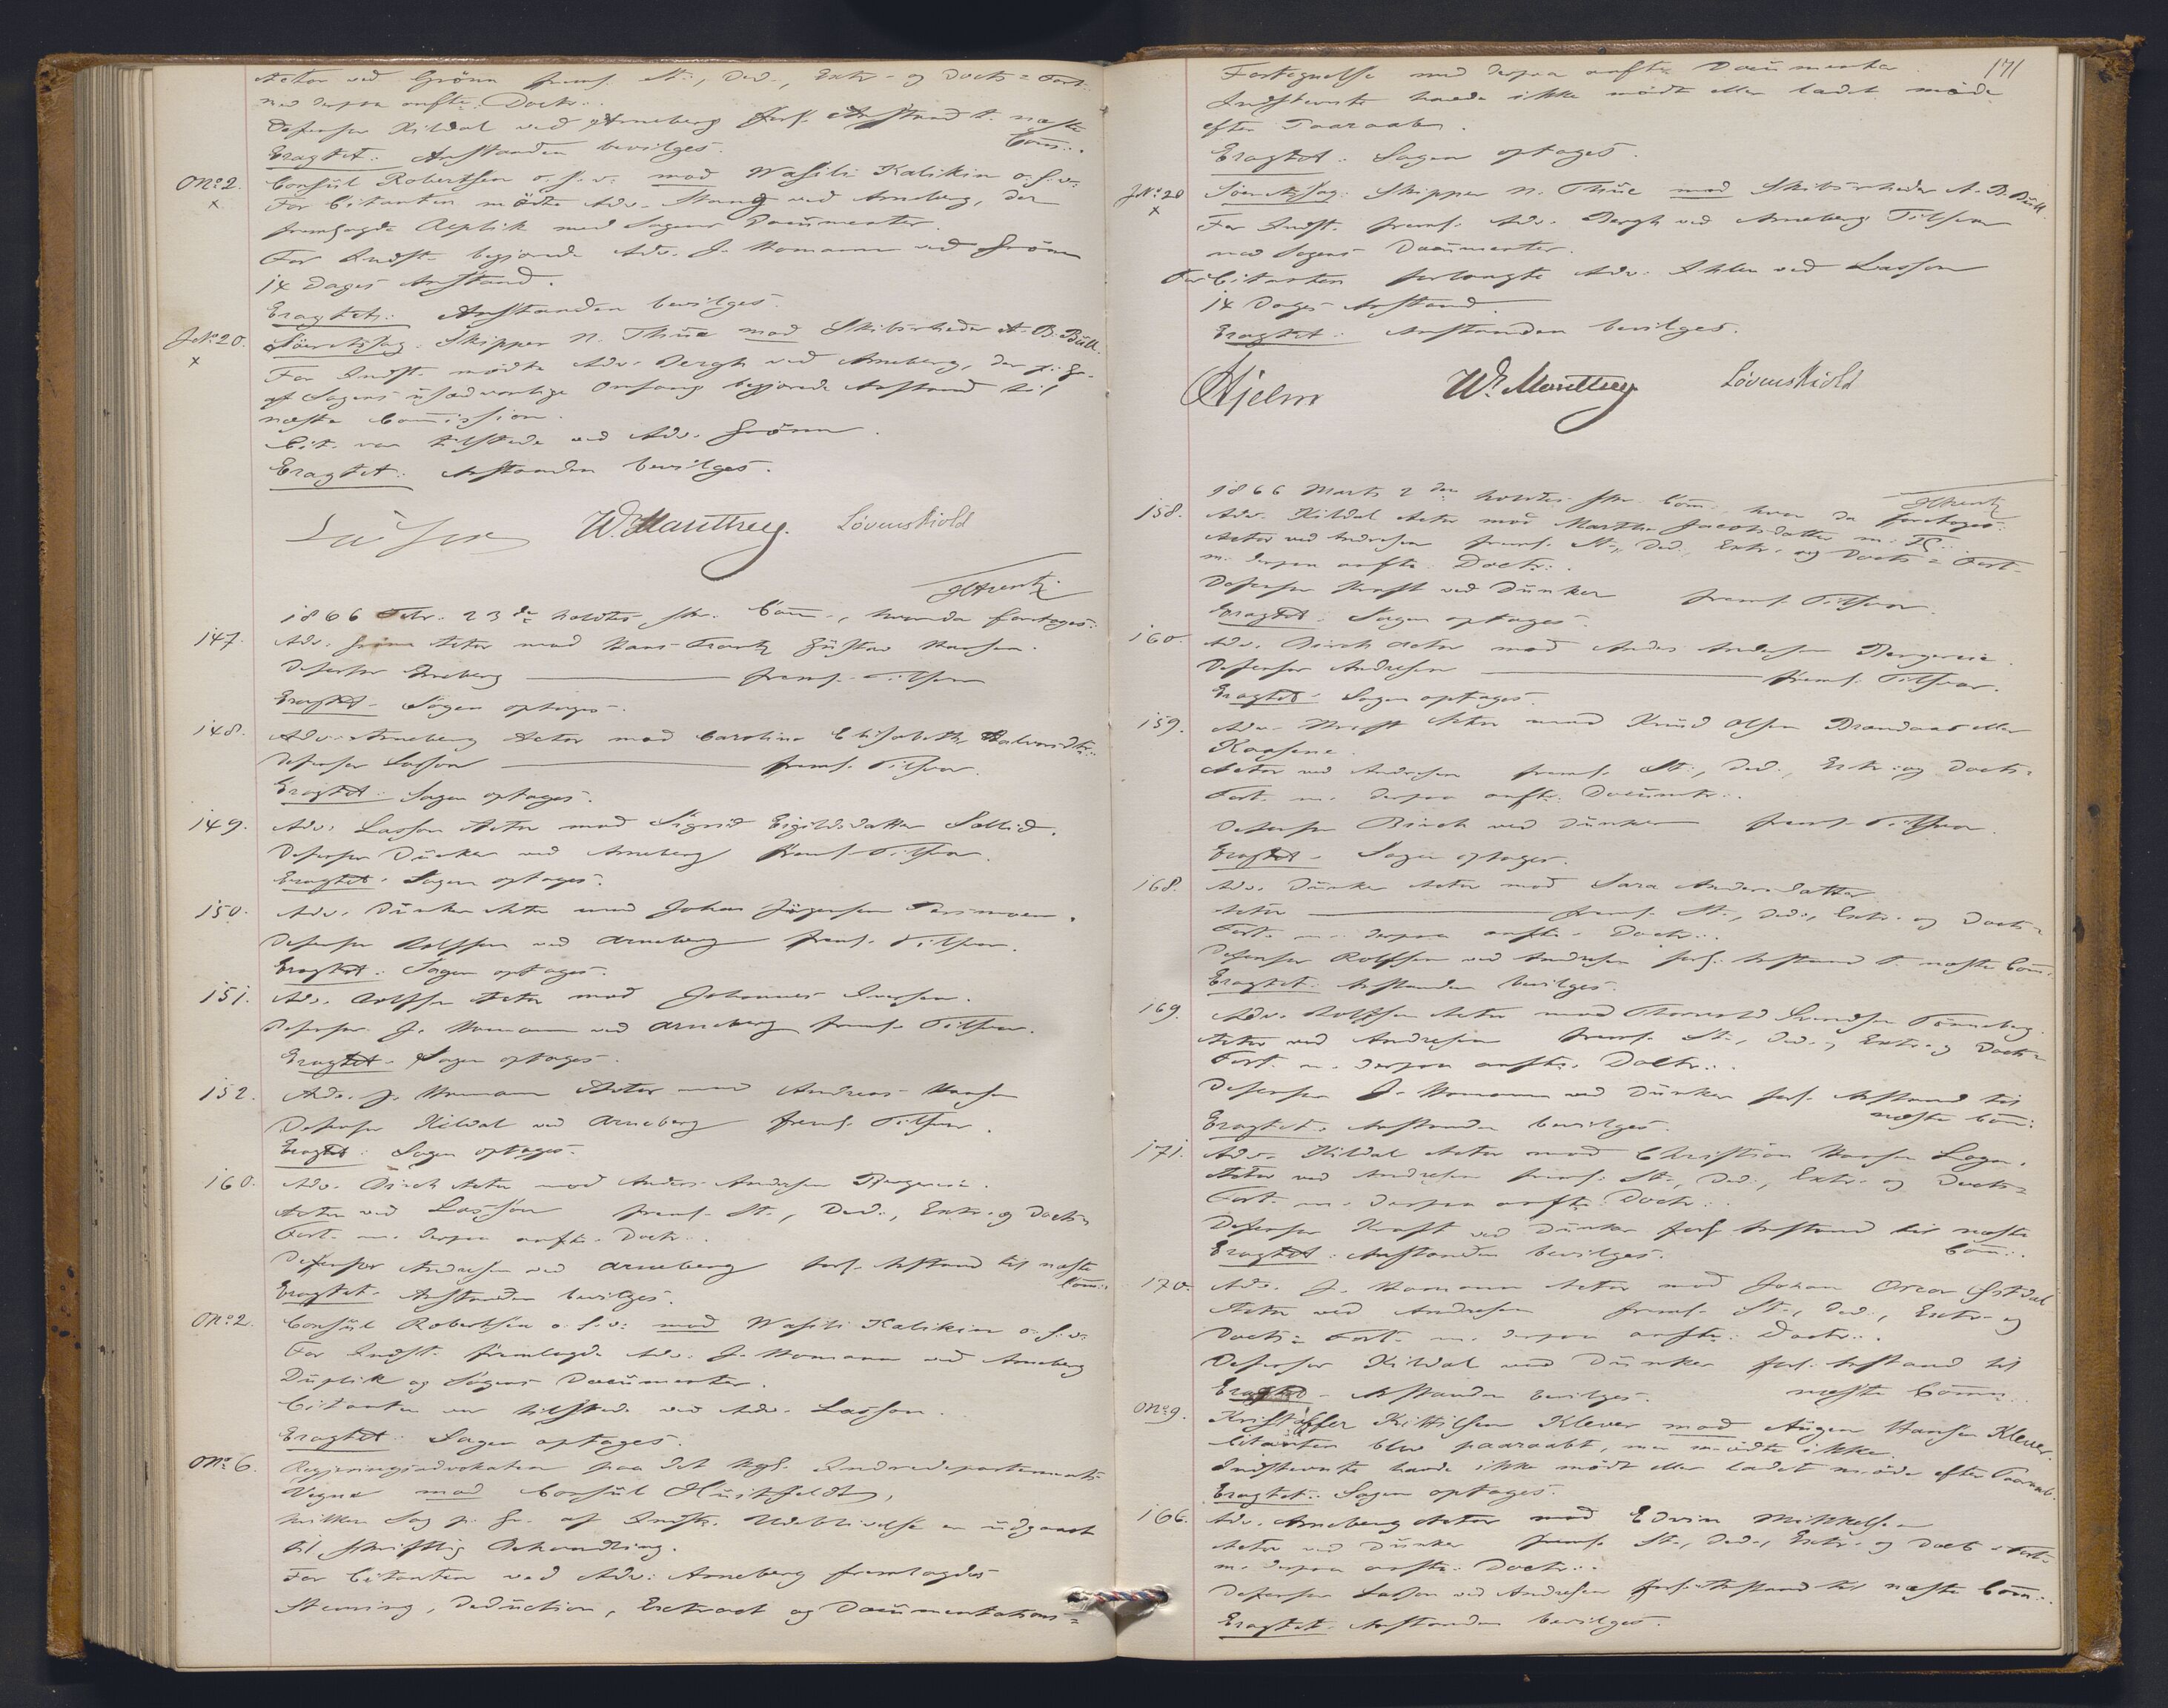 Actor ved Grönn freml. St., Ded., Extr- og Docts= Fort.
med derpaa anfte. Doctr..
Defensor Kildal ved Arneberg forl. Anstand t. næste
Com:.
Eragtet: Anstanden bevilges.
No 2. Consül Robertsen o. s. v. mod Wasili Kalikin o. s. v.
x For Citanten mödte Adv. Stang ved Arneberg, der
fremlagde Replik med Sagens Documenter.
For Indst. begjærede Adv. J. Homann ved Grönn
14 Dages Anstand.
Eragtet: Anstanden bevilges.
No 20. Söeretssag: Skipper N. Thüe mod Skibsrheder A. B. Büll.
x For Indst. mödte Adv. Bergh ved Arneberg, der p. Gr.
af Sagens usædvanlige Omfang begjærede Anstand til
næste Commission.
Cit. var tilstede ved Adv. Grönn.
Eragtet: Anstanden bevilges.
W. Manthey. Løvenskiold
1866 Febr. 23de holdtes Com., hvor da foretoges:
147. Adv. Grönn Actor mod Hans Frantz Güstav Hansen.
Defensor Arneberg freml. Tilsvar
Eragtet. Sagen optages.
148. Adv. Arneberg Actor mod Carolina Elisabeth Halvorsdtr.
Defensor Lasson freml. Tilsvar.
Eragtet: Sagen optages.
149. Adv. Lasson Actor mod Sigrid Eigildsdatter Sollid.
Defensor Dünker ved Arneberg freml. Tilsvar.
Eragtet. Sagen optages.
150. Adv. Dünker Actor mod Johan Jörgensen
Defensor Rolfsen ved Arneberg freml. Tilsvar.
Eragtet: Sagen optages.
151. Adv. Rolfsen Actor mod Johannes Iversen.
Defensor J. Homann ved Arneberg freml. Tilsvar.
Eragtet. Sagen optages.
152. Adv. J. Homann Actor mod Andreas Hansen
Defensor Kildal ved Arneberg freml. Tilsvar.
Eragtet: Sagen optages.
160. Adv. Birch Actor mod Anders Andersen Bergereie.
Actor ved Lasson freml. St., Ded., Extr. og Docts=
Fort. m. derpaa anfte. Doctr..
Defensor Andresen ved Arneberg forl. Anstand til næste
Com:.
Eragtet. Anstanden bevilges.
No 2. Consül Robertsen o. s. v. mod Wasili Kalikin o. s. v.
For Indst. fremlagde Adv. J. Homann ved Arneberg
Düplik og Sagens Documenter.
Citanten var tilstede ved Adv. Lasson.
Eragtet: Sagen optages.
No 6. Regjeringsadvokaten paa det kgl. Indredepartements
Vegne mod Consül Hüitfeldt,
hvilken Sag p. Gr. af Indst. Udeblivelse er üdgaaet
til skriftlig Behandling.
For Citanten ved Adv. Arneberg fremlagdes
Stevning, Deduction, Extract og Documentations=
171
Fortegnelse med derpaa anfte Documenter.
Indstevnte havde ikke mödt eller ladet möde
efter Paaraab.
Eragtet: Sagen optages.
No 20 Söeretssag: Skipper N. Thüe mod Skibsrheder A. B. Büll.
x For Indst. freml. Adv. Bergh ved Arneberg Tilsvar
med Sagens Documenter.
For Citanten forlangte Adv. Ihlen ved Lasson
14 Dages Anstand.
Eragtet: Anstanden bevilges.
Hjelm W. Manthey Løvenskiold
1866 Marts 2den holdtes Com. hvor da foretoges:
158. Adv. Kildal Actor mod Marthe Jacobsdatter m. Fl.
Actor ved Andresen freml. St., Ded., Extr. og Docts= Fort.
m. derpaa anfte. Doctr..
Defensor Kraft ved Dünker freml. Tilsvar.
Eragtet: Sagen optages.
160. Adv. Birch Actor mod Anders Andersen Bergereie.
Defensor Andresen freml. Tilsvar.
Eragtet. Sagen optages.
159. Adv. Actor mod Knüd Olsen eller
Kaasene.
Actor ved Andresen freml. St., Ded., Extr. og Docts=
Fort. m. derpaa anfte. Documtr..
Defensor Birch ved Dünker freml. Tilsvar.
Eragtet. Sagen optages.
168. Adv. Dünker Actor mod Sara Andersdatter
Actor freml. St., Ded., Extr. og Docts=
Fort. m. derpaa anfte. Doctr..
Defensor Rolfsen ved Andresen forl. Anstand t. næste Com.
Eragtet. Anstanden bevilges.
169. Adv. Rolfsen Actor mod Thorvald Tönneberg.
Actor ved Andresen freml. St., Ded., Extr. og Docts=
Fort. m. derpaa anfte. Doctr..
Defensor J. Homann ved Dünker forl. Anstand til
næste Com:
Eragtet. Anstanden bevilges.
171. Adv. Kildal Actor mod Christian Hansen
Actor ved Andresen freml. St., Ded., Extr. og Docts=
Fort. m. derpaa anfte. Doctr..
Defensor Kraft ved Dünker forl. Anstand til næste
Com:.
Eragtet: Anstanden bevilges.
170. Adv. J. Homann Actor mod Johan Oscar
Actor ved Andresen freml. St., Ded., Extr. og
Docts= Fort. m. derpaa anfte. Doctr..
Defensor Kildal ved Dünker forl. Anstand til
næste Comm.
Eragtet. Anstanden bevilges.
No 9. Kristoffer Kittilsen Klever mod Aügen Hansen Klever.
Citanten blev paaraabt, men mödte ikke.
Indstevnte havde ikke mödt eller ladet möde efter Paaraab.
Eragtet: Sagen optages.
166. Adv. Arneberg Actor mod Edvin Mikkelsen
Actor ved Dünker freml. St., Ded., Extr. og Docts= Fort.
m. derpaa anfte. Doctr..
Defensor Lasson ved Andresen forl. Anstand til næste Com:.
Eragtet. Anstanden bevilges.